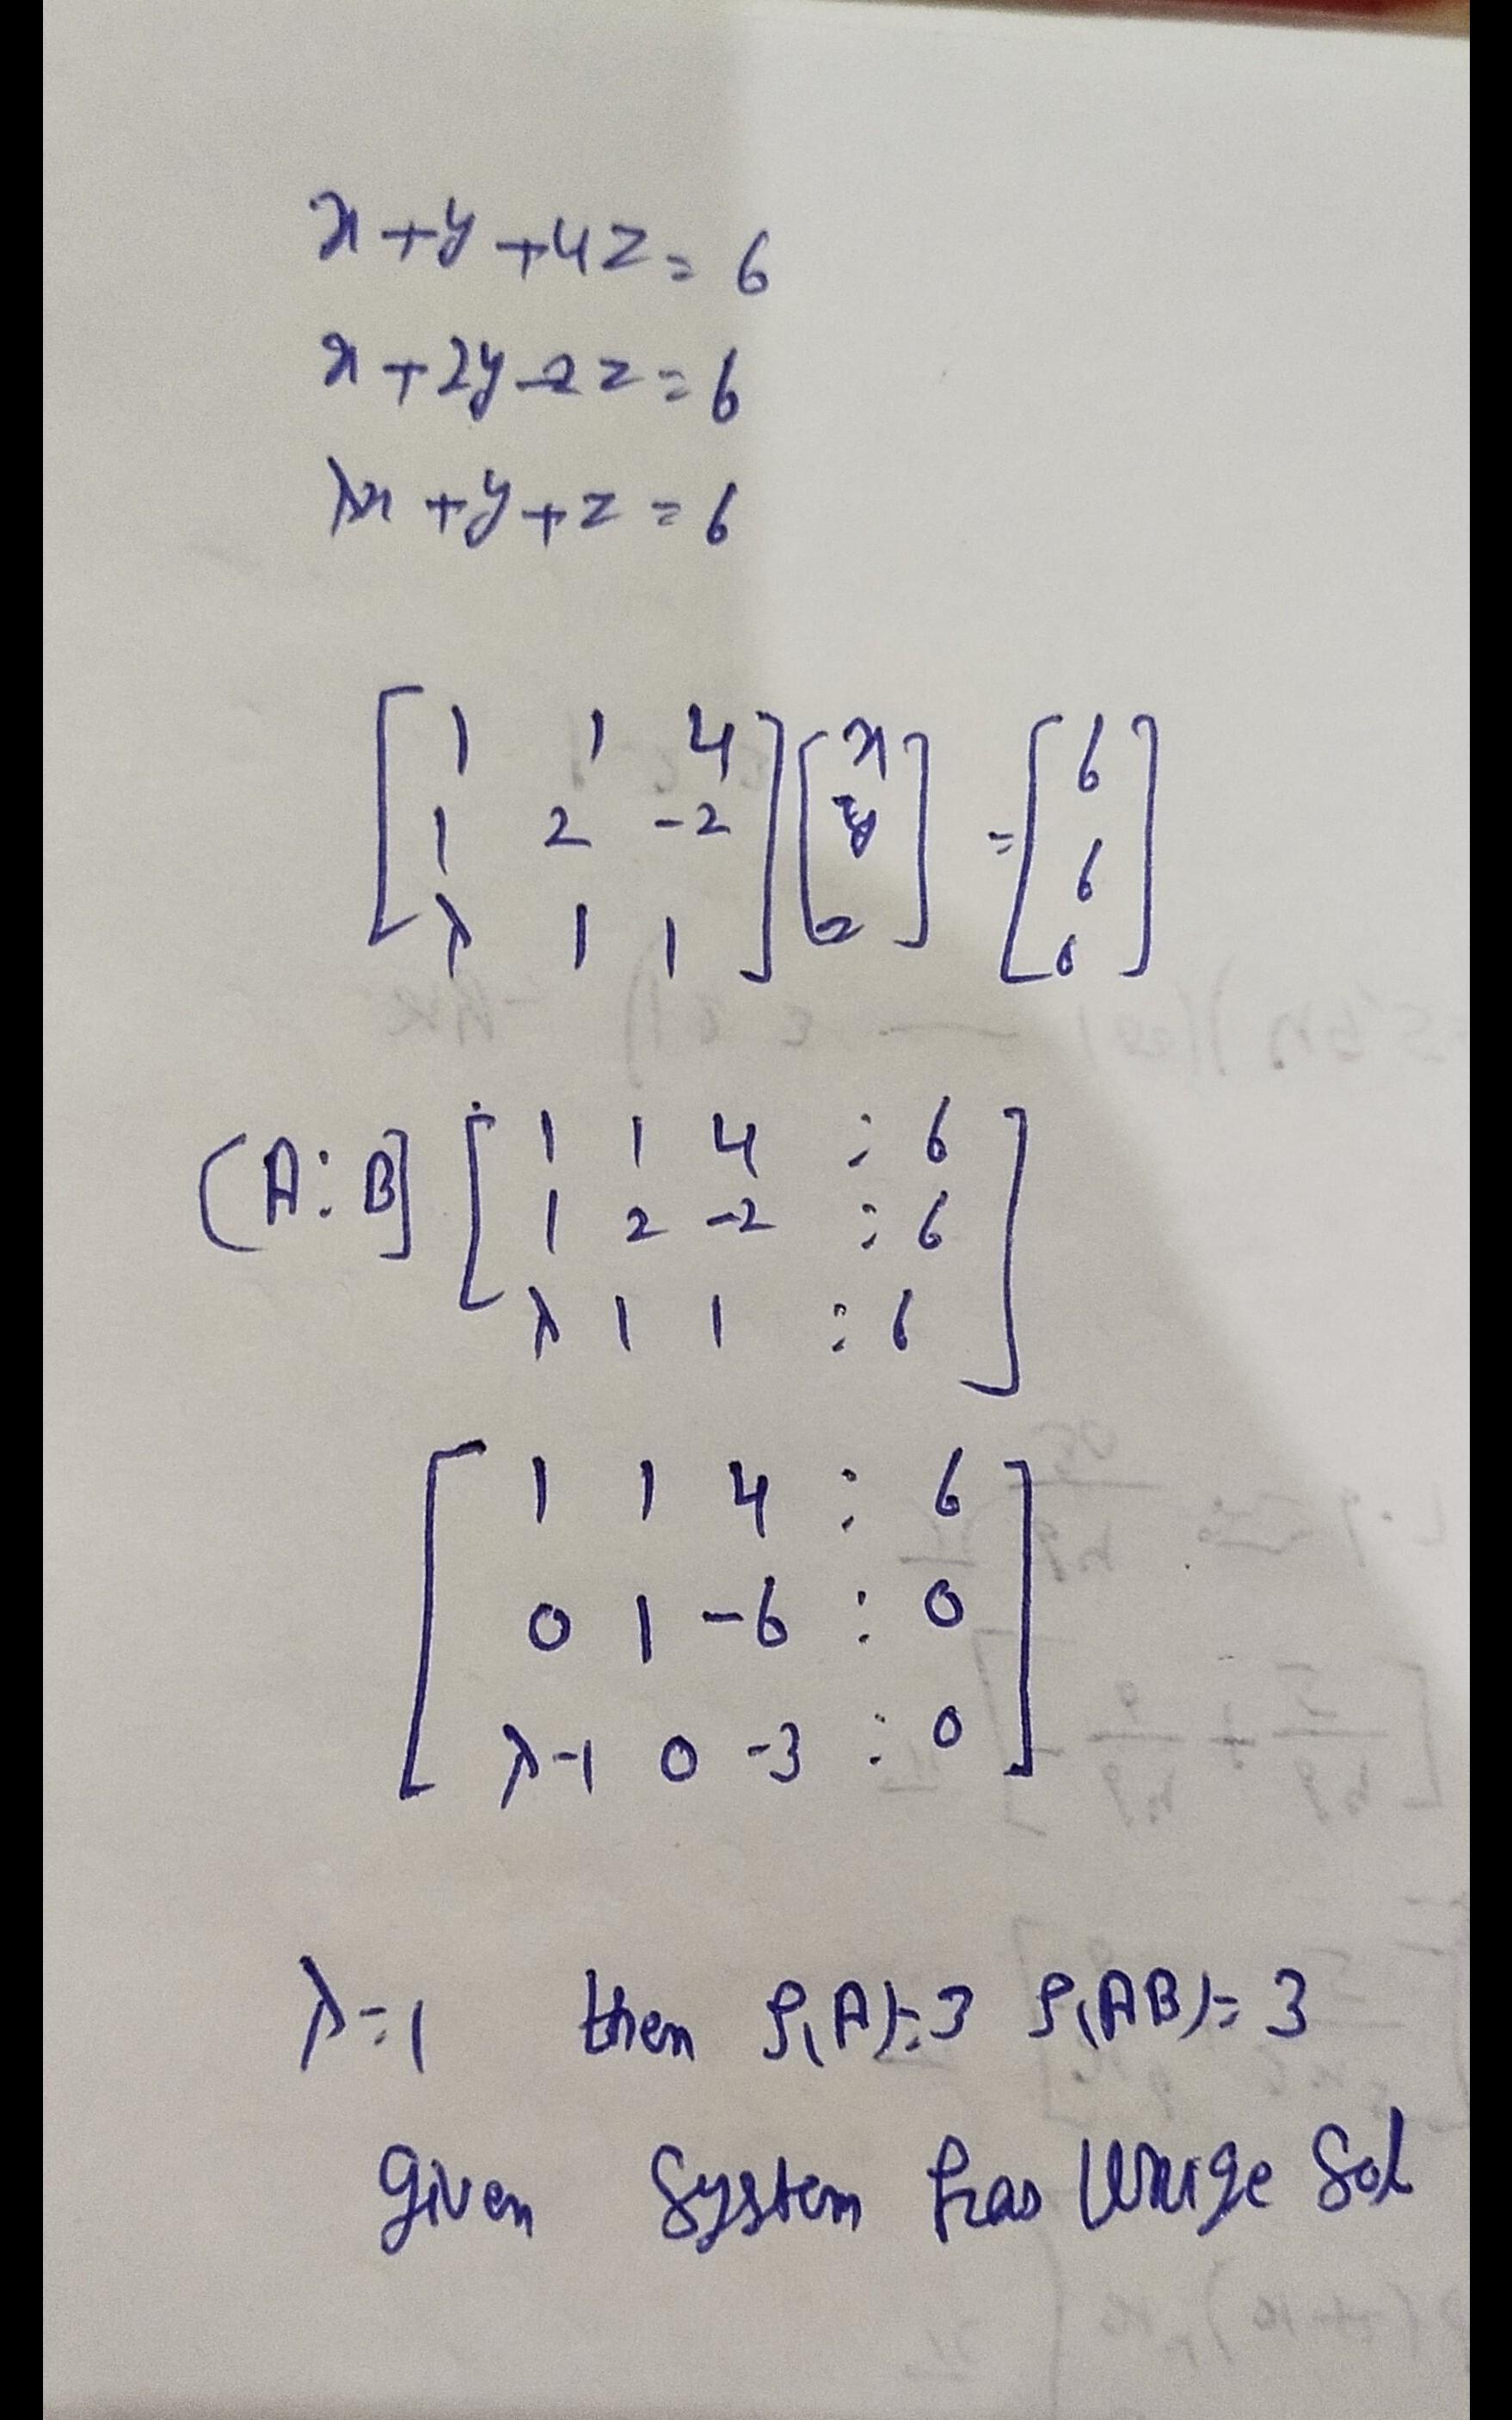 x + y + 4z = 6
x + 2y - 2z = 6
λx + y + z = 6
[1 1 4] [x] = [6]
[1 2 -2] [y] [6]
[λ 1 1] [z] [6]
[A:B] [1 1 4 : 6]
[1 2 -2 : 6]
[λ 1 1 : 6]
[1 1 4 : 6]
[0 1 -6 : 0]
[λ-1 0 -3 : 0]
λ=1 then ρ(A)=3 ρ(AB)=3
given System has Sol